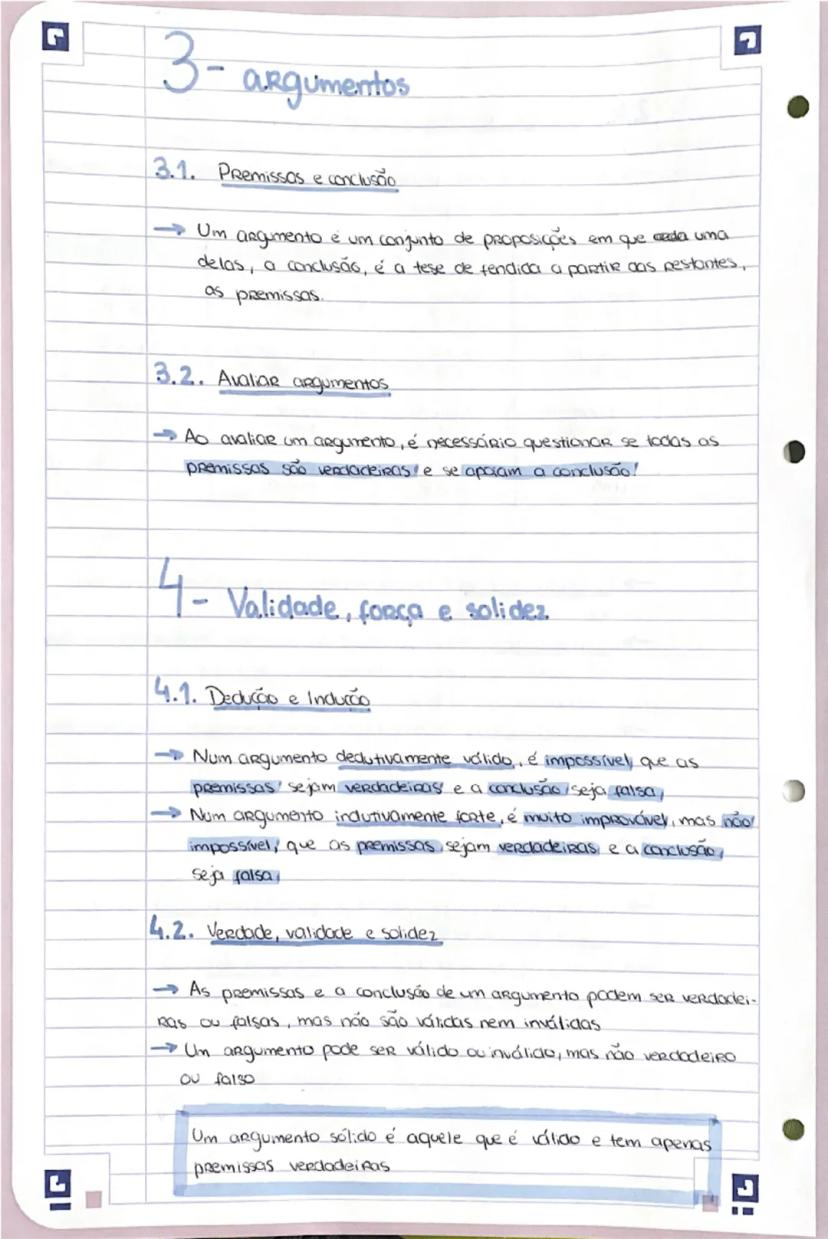 3- argumentos
3.1. Premissas e conclusão
→ Um argumento é um conjunto de proposições em que uma
delas, a conclusão, é a tese defendida a partir das restantes,
as premissas.
3.2. Avaliar argumentos
→ Ao avaliar um argumento, é necessário questionar se todas as
premissas são verdadeiras e se apoiam a conclusão!
4- Validade, força e solidez
4.1. Dedução e Indução
→ Num argumento dedutivamente válido, é impossível que as
premissas sejam verdadeiras e a conclusão seja falsa
→ Num argumento indutivamente forte, é muito improvável, mas não
impossível, que as premissas sejam verdadeiras e a conclusão
seja falsa
4.2. Verdade, validade e solidez
→ As premissas e a conclusão de um argumento podem ser verdadei-
ras ou falsas, mas não são válidas nem inválidas
→ Um argumento pode ser válido ou inválido, mas não verdadeiro
ou falso
Um argumento sólido é aquele que é válido e tem apenas
premissas verdadeiras